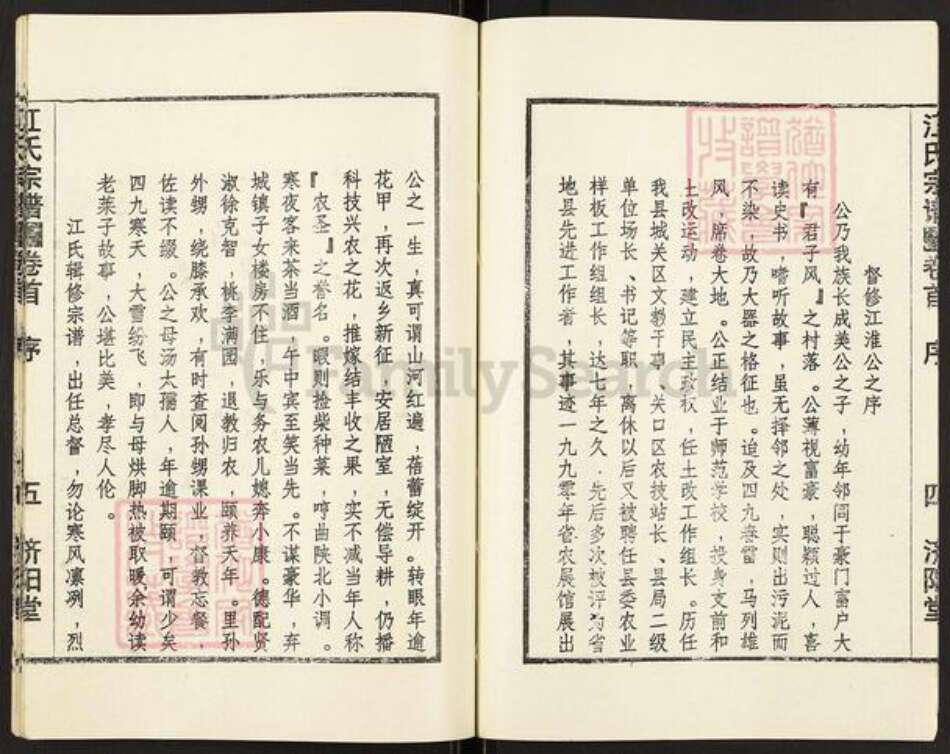 江氏宗谱 卷首 序 四 济阳堂
督修江淮公之序
公乃我族长成美公之子，幼年邻闾于豪门富户大
有『君子风』之村落。公薄视富豪，聪颖过人，喜
读史书，嗜听故事，虽无择邻之处，实则出污泥而
不染，故乃大器之格征也。迨及四九春雷，马列雄
风，席卷大地。公正结业于师范学校，投身支前和
土改运动，建立民主政权，任土改工作组长。历任
我县城关区文教干事、关口区农技站长、县局二级
单位场长、书记等职，离休以后又被聘任县委农业
样板工作组组长，达七年之久．先后多次被评为省
地县先进工作者，其事迹一九九零年省农展馆展出
公之一生，真可谓山河红遍，蓓蕾绽开。转眼年逾
花甲，再次返乡新征，安居陋室，无偿导耕，仍播
科技兴农之花，推嫁结丰收之果，实不减当年人称
『农圣』之誉名。暇则捡柴种菜，哼曲陕北小调。
寒夜客来茶当酒，午中宾至笑当先。不谋豪华，弃
城镇子女楼房不住，乐与务农儿媳奔小康。德配贤
淑徐克智，桃李满园，退教归农，颐养天年。里孙
外甥，绕膝承欢，有时查阅孙甥课业，督教忘餐，
佐读不缀。公之母汤太孺人，年逾期颐，可谓少矣
四九寒天，大雪纷飞，即与母烘脚热被取暖余幼读
老莱子故事，公堪比美，孝尽人伦。
江氏辑修宗谱，出任总督，勿论寒风凛冽，烈
江氏宗谱 卷首 序 五 济阳堂
FamilySearch